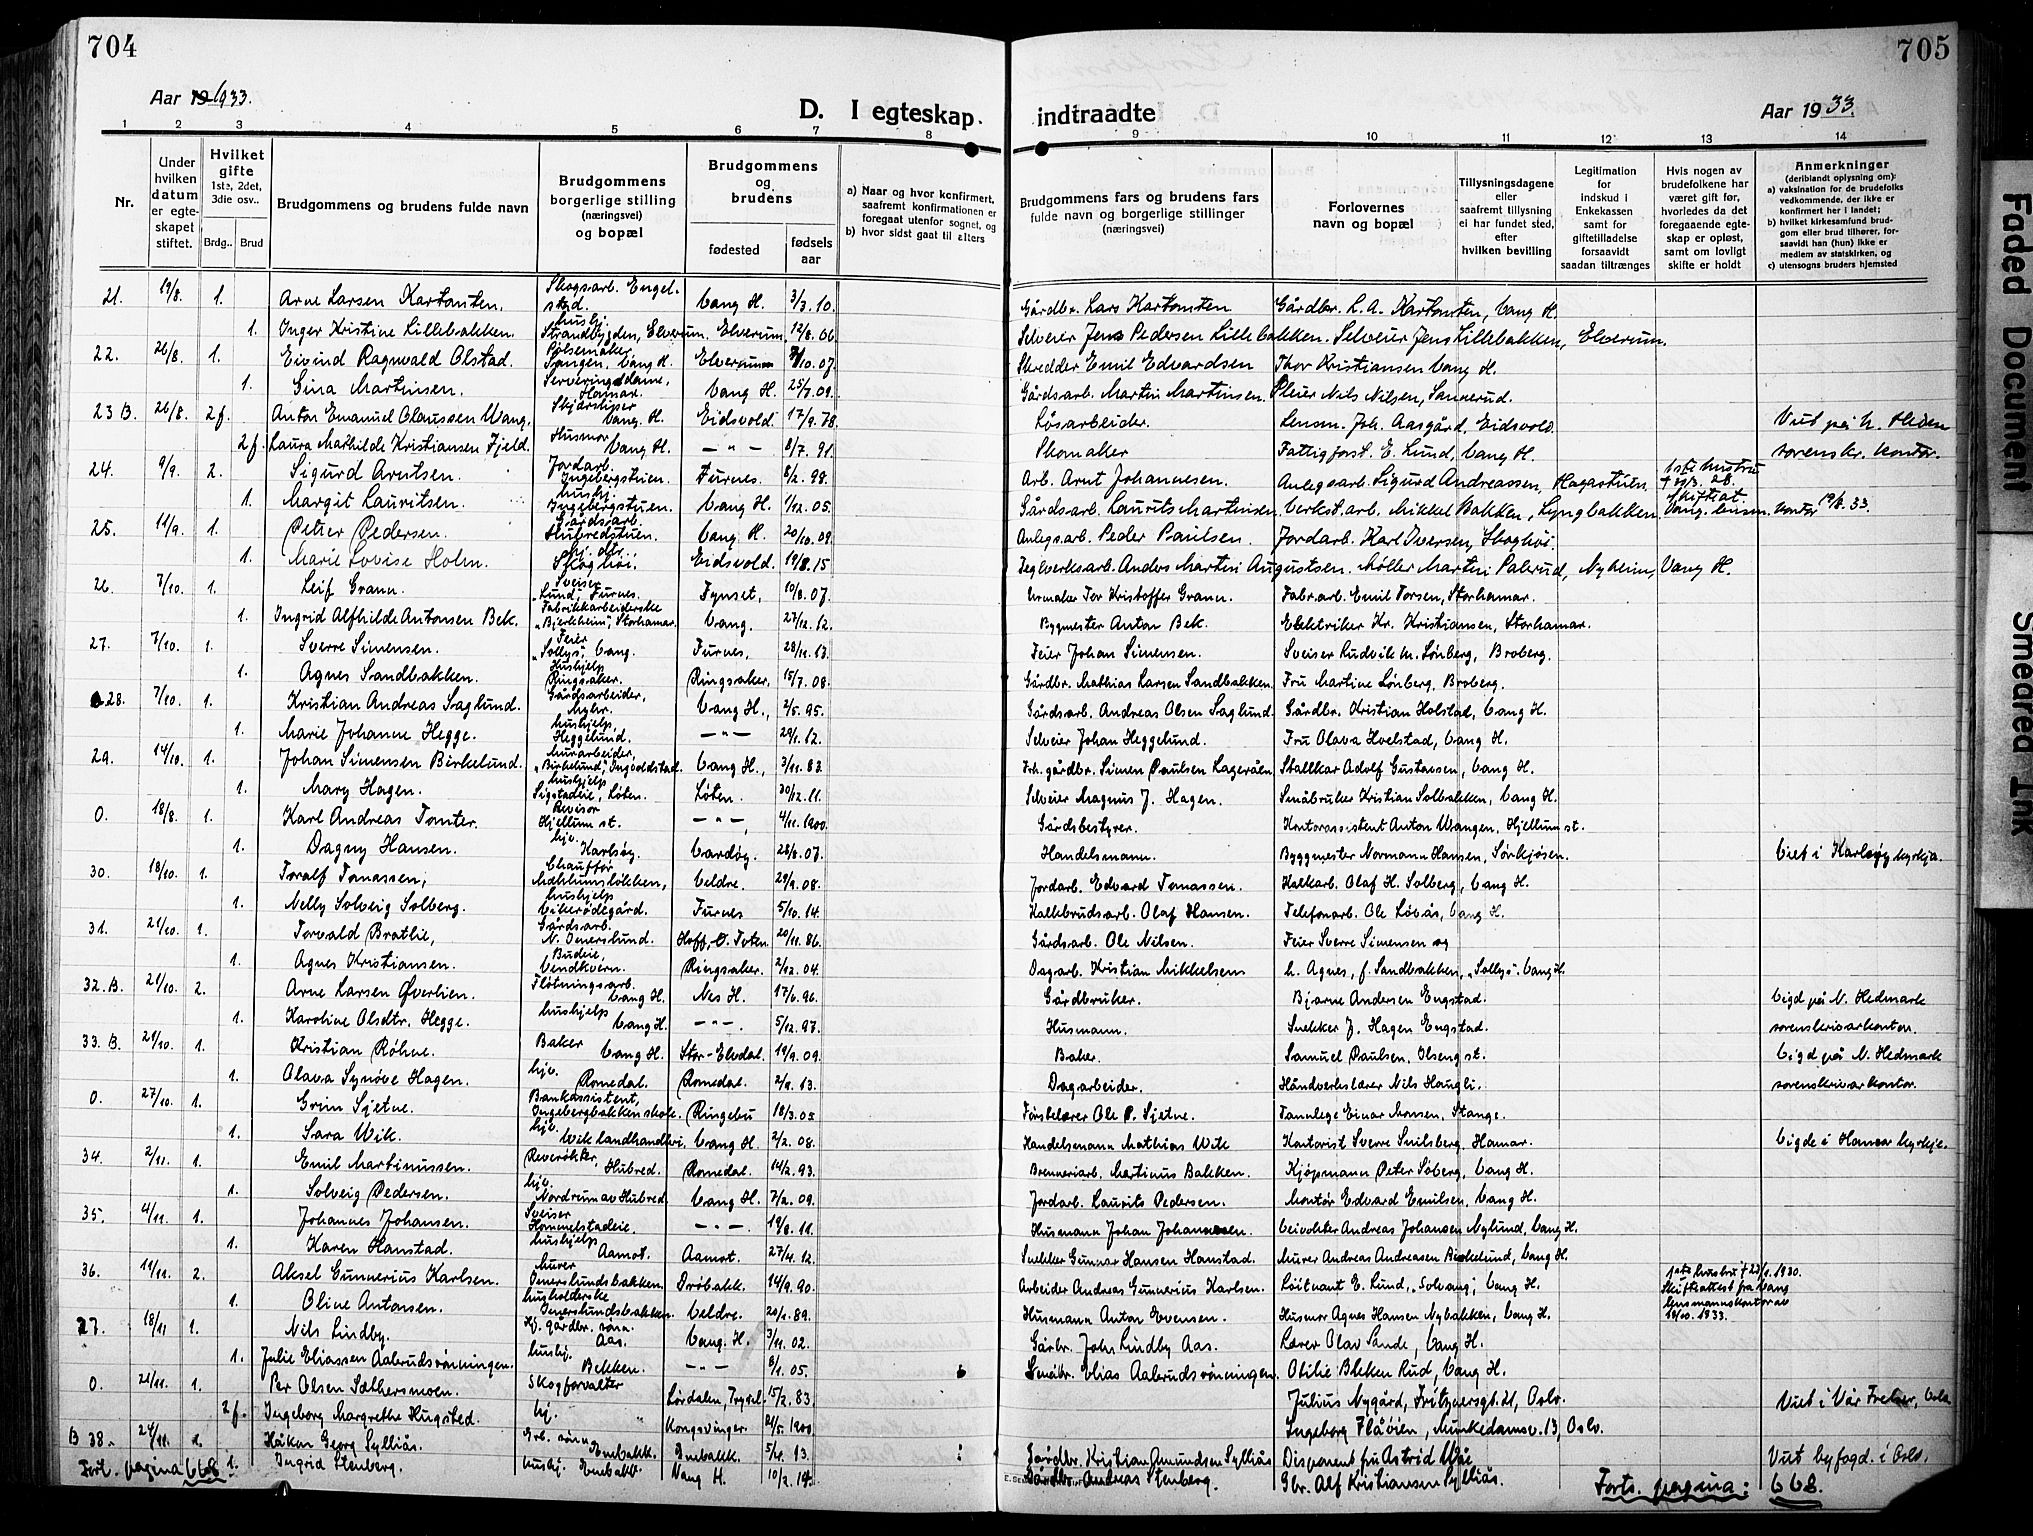 704
Aar 1933.
D. I egteskap
1 2 3 4 5 6 7 8
Nr.
Under hvilken datum er egteskapet stiftet.
Hvilket gifte 1ste, 2det, 3die osv..
Brdg.. Brud
Brudgommens og brudens fulde navn
Brudgommens borgerlige stilling (næringsvei) og bopæl
Brudgommens og brudens
fødested
fødsels aar
a) Naar og hvor konfirmert, saafremt konfirmationen er foregaat utenfor sognet, og
b) hvor sidst gaat til alters
21. 19/8. 1. Arne Larsen Kartomten. Skogsarb. Engelstad. Vang H. 3/3.10.
1. Inger Kristine Lillebakken. hushj. Strandbygden, Elverum. Elverum. 12/8.06
22. 26/8. 1. Eivind Ragnvald Olstad. Pølsemaker Vang H. Elverum 10.07.
1. Gina Martinsen. Serveringsdame, Hamar. Vang H. 25/7.09.
23 B. 26/8. 2 f. Anton Emanuel Olaussen Wang. Vang. H. Eidsvold. 17/9.78
2 f. Laura Mathilde Kristiansen Fjeld. Husmor Vang H. – " – 8/7.91.
24. 9/9. 2. Sigurd Arntsen. Jordarb. Ingebergstuen. Furnes. 8/2.98.
1. Margit Lauritsen. hushj. Ingebergstuen. Vang H. 1/12.05.
25. 11/9. 1. Petter Pedersen. Gårdsarb. Hubredstuen. Vang. H. 20/10.09.
1. Marie Lovise Holm. hj. dtr. Skoghøi. Eidsvold. 19/8.15
26. 7/10. 1. Leif Grann. Sveiser "Lund", Furnes. Tynset, 10/8.07.
1. Ingrid Alfhilde Antonsen Bek. Fabrikkarbeiderske "Bjerkheim", Storhamar. Vang. 27/12.12.
27. 7/10. 1. Sverre Simensen. Feier "Solbys", Vang. Furnes, 28/11.13.
1. Agnes Sandbakken. Hushjelp Ringsaker. Ringsaker, 15/7.08.
28. 7/10. 1. Kristian Andreas Saglund. Gårdsarbeider, Vang H., 2/5.95.
1. Marie Johanne Hegge. hushjelp, Heggelund. – " – 29/1.12.
29. 14/10. 1. Johan Simensen Birkelund. Murarbeider, "Birkelund", Ingvoldstad. Vang H., 3/11.83.
1. Mary Hagen. hushjelp Sigstadeie, Løten. Løten. 30/12.11.
0. 18/8. 1. Karl Andreas Tomter. Revisor Hjellum st. – " – 4/11.1900.
1. Dagny Hansen. hjv. Karlsøy. Vardøy. 28/8.07.
30. 18/10. 1. Toralf Tomassen, Chauffør, Mæhlumsløkken, Veldre. 29/9.08.
1. Nelly Solveig Solberg. hushjelp Vikerødegård. Furnes 5/10.14.
31. 21/10. 1. Torvald Bratlie, Gårdsarb. N. Imerslund. Hoff, Ø. Toten. 20/11.86.
1. Agnes Kristiansen. Budeie, Vendkvern. Ringsaker. 2/12.04.
32. B. 21/10. 2. Arne Larsen Øverlien. Fløtningsarb. Vang H. Nes H. 17/6.96.
1. Karoline Olsdtr. Hegge. hushjelp Vang H. – " –. 5/12.97.
33. B. 21/10. 1. Kristian Røhne. Baker Vang H. Stor-Elvdal. 19/9.09.
1. Olava Synøve Hagen. hjv. Romedal. Romedal. 2/9.13.
0. 27/10. 1. Grim Sjetne. Bankassistent, Ingebergbakken skole. Ringebu 18/3.05
1. Sara Wik. hjv. Wik landhandleri. Vang H. 2/2.08.
34. 2/11. 1. Emil Martinussen. Reverøkter, Hubred. Romedal. 14/2.93.
1. Solveig Pedersen. hjv. Nordrum av Hubred. Vang H. 7/2.09.
35. 4/11. 1. Johannes Johansen. Sveiser Hommelstadeie. – " –. 19/8.11.
1. Karen Hanstad. hushjelp Aamot. Aamot. 27/4.12.
36. 11/11. 2. Aksel Gunnerius Karlsen. Murer Imerslundsbakken. Drøbakk. 14/9.90.
1. Oline Antonsen. husholderske Imerslundsbakken. Veldre. 20/1.89.
37. 18/11 1. Nils Lindby. Hj. gårdbr. sønn Aas. Vang. H. 3/11.02.
1. Julie Eliassen Aalerudsrønningen. hushj. Bekken. – " – 8/1.05.
0. 21/11. 1. Per Olsen Sæthersmoen. Skogforvalter Lørdalen, Trysil. 15/2.83.
2 f. Ingeborg Margrethe Hugsted. hj. Kongsvinger. 24/5.1900
B 38. 24/11. Håkon Georg Sylliås. Grb. sønn Trebakk. 5/4.13.
1. Ingrid Stenberg. hushj. Vang H. 10/2.14.
Fort. pagina 668
705
Aar 1933.
indtraadte
9 10 11 12 13 14
Brudgommens fars og brudens fars fulde navn og borgerlige stillinger (næringsvei)
Forlovernes navn og bopæl
Tillysningsdagene eller saafremt tillysning ei har fundet sted, efter hvilken bevilling
Legitimation for indskud i Enkekassen samt for giftetilladelse forsaavidt saadan tiltrænges
Hvis nogen av brudefolkene har været gift før, hvorledes da det foregaaende egteskap er opløst, samt om lovligt skifte er holdt
Anmerkninger (deriblandt oplysning om):
a) vaksination for de brudefolks vedkommende, der ikke er konfirmert her i landet;
b) hvilket kirkesamfund brudgom eller brud tilhører, forsaavidt han (hun) ikke er medlem av statskirken, og
c) utensogns bruders hjemsted
Gårdbr. Lars Kartomten Gårdbr. L. A. Kartomten, Vang H.
Selveier Jens Pedersen Lillebakken. Selveier Jens Lillebakken, Elverum.
Skredder Emil Edvardsen Thor Kristiansen Vang H.
Gårdsarb. Martin Martinsen. Pleier Nils Nilsen, Sannerud.
Løsarbeider. Lensm. Joh. Aasgård, Eidsvold. Viet på N. Heden
Skomaker Fattigforst. E. Lund, Vang H. sorenskr. kontor.
Arb. Arnt Johannesen. Anlegsarb. Sigurd Andreassen, Hagastuen. 1ste hustru † 29/3.28. Skifteat.
Gårdsarb. Laurits Martinsen. Verkst. arb. Mikkel Bakken, Lyngbakken. Vang. lensm. kontor 19/8.33.
Anlegsarb. Peder Paulsen. Jordarb. Karl Iversen, Skoghøi.
Teglverksarb. Anders Martin Augustsen. Møller Martin Palerud, Nyheim, Vang H.
Urmaker Tor Kristoffer Grann. Fabr.arb. Emil Torsen, Storhamar.
Bygmester Anton Bek. Elektriker Kr. Kristiansen, Storhamar.
Feier Johan Simensen. Sveiser Ludvik M. Lønberg, Broberg.
Gårdbr. Mathias Larsen Sandbakken. Fru Martine Lønberg, Broberg.
Gårdsarb. Andreas Olsen Saglund. Gårdbr. Kristian Holstad, Vang H.
Selveier Johan Heggelund. Fru Olava Hoelstad, Vang H.
Frh. gårdbr. Simen Paulsen Lageråen Stallkar Adolf Gustavsen, Vang H.
Selveier Magnus J. Hagen. Småbruker Kristian Solbakken, Vang H.
Gårdsbestyrer. Kontorassistent Anton Wangen, Hjellum st.
Handelsmann. Byggmester Normann Hansen, Sørkjosen. Viet i Karlsøy kyrkje.
Jordarb. Edvard Tomassen. Kalkarb. Olaf H. Solberg, Vang H.
Kalkbrudsarb. Olaf Hansen. Telefonarb. Ole Løbås, Vang H.
Gårdsarb. Ole Nilsen. Feier Sverre Simensen og
Dagarb. Kristian Mikkelsen h. Agnes, f. Sandbakken, "Solbys". Vang H.
Gårdbruker. Bjarne Andersen Engstad. Vigd på N. Hedmark
Husmann. Snekker J. Hagen Engstad. sorenskrivarkontor.
Baker. Samuel Paulsen, Ilseng st. Vigd på N. Hedmark
Dagarbeider. Håndverkslærer Nils Haugli. sorenskrivarkontor.
Førstelærer Ole P. Sjetne. Tannlege Einar Monsen, Stange.
Handelsmann Mathias Wik Kontorist Sverre Snilsberg, Hamar. Vigde i Hamar kyrkje.
Brenneriarb. Martinus Bakken. Kjøpmann Peter Søberg, Vang H.
Jordarb. Laurits Pedersen. Montør Edvard Emilsen, Vang H.
Husmann Johan Johannesen. Veivokter Andreas Johansen Nylund, Vang H.
Snekker Gunnar Hansen Hanstad. Murer Andreas Andreasen Birkelund, Vang H.
Arbeider Andreas Gunnerius Karlsen. Løitnant E. Lund, "Solvang", Vang H. 1ste hustru † 23/1.1930. Skifteattest fra Vang lensmannskontor av 18/10.1933.
Husmann Anton Evensen. Husmor Agnes Hansen Nybakken, Vang H.
Gårbr. John Lindby Aas. Lærer Olav Sande, Vang H.
Småbr. Elias Aalerudsrønningen. Otilie Blekken Rud, Vang H.
Julius Nygård, Fritznersgt. 21, Oslo. Viet i Vår Frelser, Oslo
Ingeborg Flåvien, Munkedamsv. 13, Oslo.
Gårdbr. Kristian Amundsen Sylliås Disponent fru Astrid Viet byfogd. i Oslo.
Gårdbr. Andreas Stenberg. Gbr. Alf Kristiansen Sylliås.
Forts. pagina: 668.
Faded Document
Smeared Ink